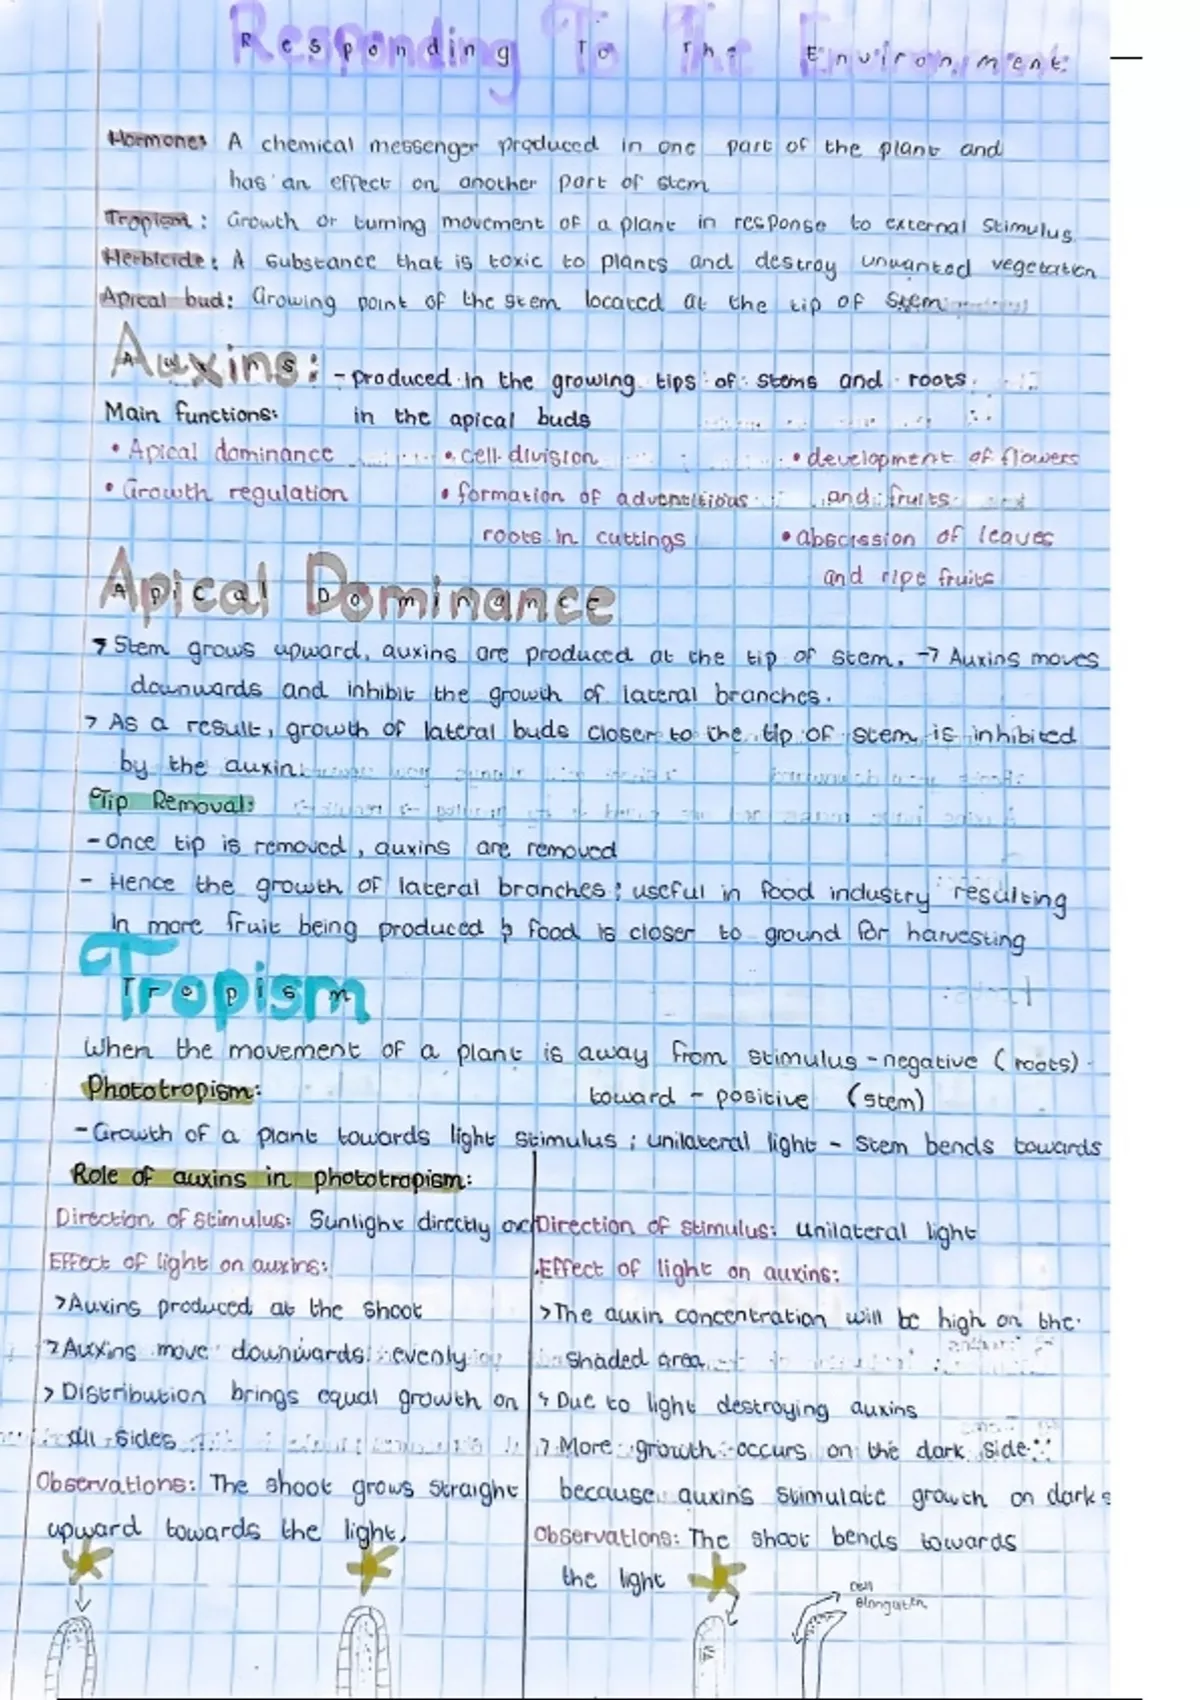 Responding To The Environment
Hormone: A chemical messenger produced in one part of the plant and
has an effect on another part of stem
Tropism: Growth or turning movement of a plant in response to external stimulus
Herbicide: A substance that is toxic to plants and destroy unwanted vegetation
Apical bud: Growing point of the stem located at the tip of stem
Auxins: - produced in the growing tips of stems and roots.
Main functions: in the apical buds
• Apical dominance • cell division • development of flowers
• Growth regulation • formation of adventitious and fruits
roots in cuttings • abscission of leaves
and ripe fruits
Apical Dominance
> Stem grows upward, auxins are produced at the tip of stem. → Auxins moves
downwards and inhibit the growth of lateral branches.
> As a result, growth of lateral buds closer to the tip of stem is inhibited
by the auxin.
Tip Removal:
- Once tip is removed, auxins are removed
- Hence the growth of lateral branches; useful in food industry resulting
in more fruit being produced & food is closer to ground for harvesting
Tropism
When the movement of a plant is away from stimulus - negative (roots)
Phototropism: toward - positive (stem)
- Growth of a plant towards light stimulus; unilateral light - stem bends towards
Role of auxins in phototropism:
Direction of stimulus: Sunlight directly
Effect of light on auxins:
> Auxins produced at the shoot
> Auxins move downwards evenly
> Distribution brings equal growth on
all sides
Observations: The shoot grows straight
upward towards the light,
Direction of stimulus: unilateral light
Effect of light on auxins:
> The auxin concentration will be high on the
shaded area
> Due to light destroying auxins
> More growth occurs on the dark side
because auxins stimulate growth on dark s
Observations: The shoot bends towards
the light
Cell
Elongation